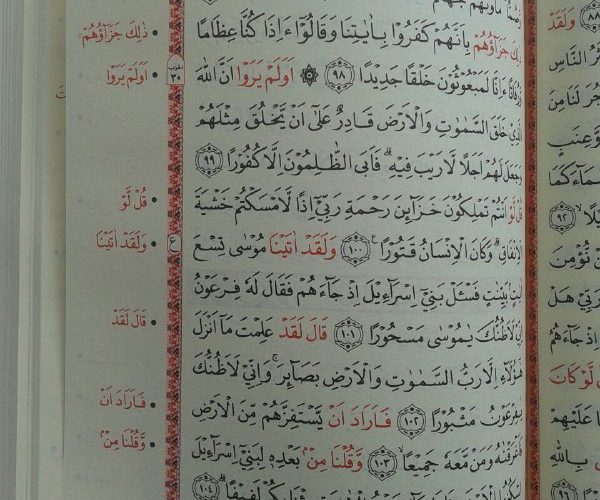 مأويهم جهنم
ذٰلِكَ جَزَٓاؤُ۬هُمْ بِاَنَّهُمْ كَفَرُوا بِاٰيَاتِنَا وَقَالُٓوا ءَاِذَا كُنَّا عِظَامًا
وَرُفَاتًا ءَاِنَّا لَمَبْعُوثُونَ خَلْقًا جَدِيدًا ﴿٩٨﴾ ۞ اَوَلَمْ يَرَوْا اَنَّ اللّٰهَ
الَّذِي خَلَقَ السَّمٰوٰتِ وَالْاَرْضَ قَادِرٌ عَلٰٓى اَنْ يَخْلُقَ مِثْلَهُمْ
وَجَعَلَ لَهُمْ اَجَلًا لَا رَيْبَ فِيهِ ۗ فَاَبَى الظّٰلِمُونَ اِلَّا كُفُورًا ﴿٩٩﴾
قُلْ لَوْ اَنْتُمْ تَمْلِكُونَ خَزَٓائِنَ رَحْمَةِ رَبِّٓي اِذًا لَاَمْسَكْتُمْ خَشْيَةَ
الْاِنْفَاقِ ۗ وَكَانَ الْاِنْسَانُ قَتُورًا ﴿١٠٠﴾ وَلَقَدْ اٰتَيْنَا مُوسٰى تِسْعَ
اٰيَاتٍ بَيِّنٰتٍ فَسْـَٔلْ بَنِٓي اِسْرَٓاءِيلَ اِذْ جَٓاءَهُمْ فَقَالَ لَهُ فِرْعَوْنُ
اِنِّي لَاَظُنُّكَ يٰمُوسٰى مَسْحُورًا ﴿١٠١﴾ قَالَ لَقَدْ عَلِمْتَ مَٓا اَنْزَلَ
هٰٓؤُ۬لَٓاءِ اِلَّا رَبُّ السَّمٰوٰتِ وَالْاَرْضِ بَصَٓائِرَ ۚ وَاِنِّي لَاَظُنُّكَ
يٰفِرْعَوْنُ مَثْبُورًا ﴿١٠٢﴾ فَاَرَادَ اَنْ يَسْتَفِزَّهُمْ مِنَ الْاَرْضِ
فَاَغْرَقْنٰهُ وَمَنْ مَعَهُ جَمِيعًا ۙ ﴿١٠٣﴾ وَقُلْنَا مِنْ بَعْدِهِ لِبَنِٓي اِسْرَٓاءِيلَ
لَفِيفًا ۗ ﴿١٠٤﴾
• ذٰلِكَ جَزَٓاؤُ۬هُمْ
• اَوَلَمْ يَرَوْا
حزب
٣٠
• قُلْ لَوْ
• وَلَقَدْ اٰتَيْنَا
ع
• قَالَ لَقَدْ
• فَاَرَادَ اَنْ
• وَقُلْنَا مِنْ
٨٨
وَلَقَدْ
النَّاسِ
لَنَا مِنَ
وَعِنَبٍ
كَمَا
﴿٩٢﴾
نُؤْمِنَ
رَبِّي هَلْ
اِذْ جَٓاءَهُمُ
لَوْ كَانَ
عَلَيْهِمْ
بِاللّٰهِ
٩٦